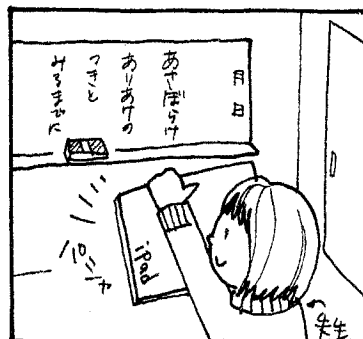 月日
あさぼらけ
ありあけの
つきと
みるまでに
パシャ
iPad
先生